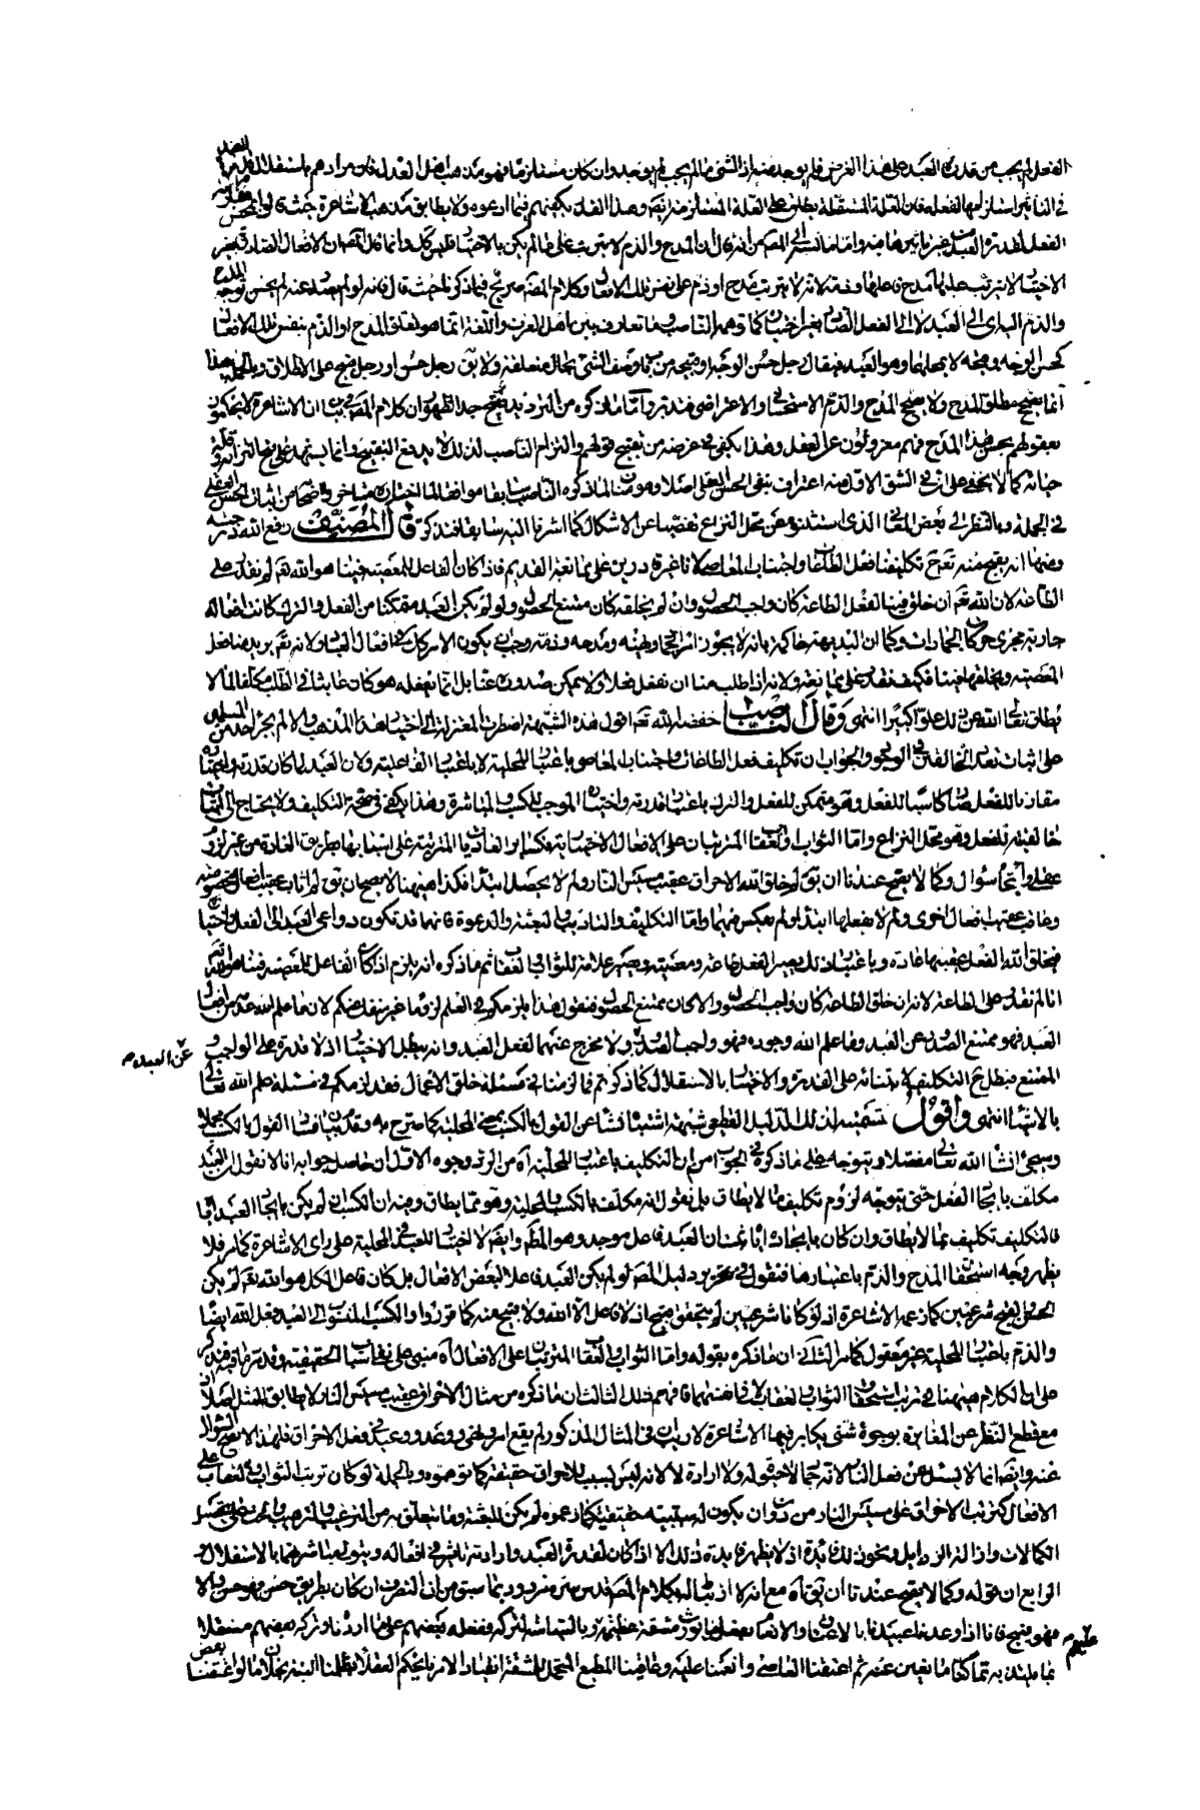 الفعل لم يجب من قدرة العبد على هذا الغرض فلم يوجد منه اذ الشئ ما لم يجب لم يوجد وان كان مستلزما فهو مذهب اهل العدل فان مرادهم باستقلال القدرة
في التأثير استلزامها للفعل فان القدرة المستقلة يطلق على القدرة المستلزمة ايضا وهذا القدر يكفيهم فيما ادعوه ولا يطابق مذهب الاشاعرة حيث قالوا بمحض مقارنة
الفعل لقدرة العبد من غير تأثيرها فيه واما ما نسبه الى المصنف من انه قال ان المدح والذم لا يترتب على ما لم يكن بالاختيار فليس كل وانما قال المصنف ان الافعال الصادرة بغير
الاختيار لا يترتب عليها مدح فاعلها وذمه لا انه لا يترتب مدح او ذم على نفس تلك الافعال وكلام المصنف صريح فيما ذكرنا حيث قال فانه لو لم يصدر عنه لم يحسن توجه المدح
والذم البارى الى العبد لا الى الفعل الصادر بغير اختيار كما توهمه الناصب وما تعارف بين اهل العرف واللغة انما هو تعلق المدح او الذم بنفس تلك الافعال
كحسن الوجه وقبحه لا بمحلهما وهو العبد فيقال رجل حسن الوجه او قبيحه من باب وصف الشئ بحال متعلقه ولا يقال رجل حسن او رجل قبيح على الاطلاق وبالجملة هذا
انما يصحح مطلق المدح ولا يصحح المدح والذم الاستحقاقي والاعراضي
بعقولهم بحسن هذا المدح فهم معزولون عن العقل وهذا يكفي في غرضه من تقبيح قولهم والتزام الناصب لذلك لا يدفع التقبيح وانما يشهد على
حيائه كما لا يخفى على ان في الشق الاول منه اعتراف بنفي الحسن العقلي اصلا
في الجملة وبالنظر الى بعض المعاني الذى استثنوه عن محل النزاع تفصيا عن الاشكال كما اشرنا اليه سابقا فتذكر قال المصنف رفع الله درجته
ومنها انه يقبح منه تعالى تكليفنا فعل الطاعات واجتناب المعاصي لانا غير قادرين على ممانعة القديم فاذا كان الفاعل للمعصية فينا هو الله تعالى لم نقدر على
الطاعة لان الله تعالى ان خلق فينا الفعل الطاعة كان واجب الحصول وان لم يخلقه كان ممتنع الحصول ولو لم يكن العبد متمكنا من الفعل والترك كانت افعاله
جارية مجرى حركات الجمادات وكما ان البديهة حاكمة بانه لا يجوز امر الجماد ونهيه ومدحه وذمه وجب ان يكون الامر كذلك في افعال العباد ولانه تعالى يريد منا فعل
المعصية ويخلقها فينا فكيف نقدر على ممانعته ولانه اذا طلب منا ان نفعل فعلا ولا يمكن صدوره عنا بل انما يفعله هو كان عابثا في الطلب مكلفا لما لا
يطاق تعالى الله عن ذلك علوا كبيرا انتهى وقال الناصب خفضه الله تعالى اقول هذه الشبهة اضطرت المعتزلة الى اختيار هذا المذهب والا لم يجترء احد من المسلمين
على اثبات تعدد الخالقين في الوجود والجواب ان تكليف فعل الطاعات واجتناب المعاصي باعتبار المحلية لا باعتبار الفاعلية ولان العبد لما كان قدرته واختياره
مقارنا للفعل صار كاسبا للفعل وهو متمكن للفعل والترك باعتبار قدرته واختياره الموجب للكسب والمباشرة وهذا يكفي في صحة التكليف ولا يحتاج الى اثبات
خالقيته للفعل وهو محل النزاع واما الثواب والعقاب المترتبان على الافعال الاختيارية فكسائر العاديات المترتبة على اسبابها بطريق العادة من غير لزوم
عقلي واتجاه سؤال وكما لا يقبح عندنا ان يقال لم خلق الله الاحراق عقيب مسيس النار ولم لا يحصل ابتداء فكذا ههنا لا يصح ان يقال لم اثاب عقيب افعال مخصوصة
وعاقب عقيب افعال اخرى ولم لا يفعلها ابتداء او لم يعكس فيهما واما التكليف والتأديب والبعثة والدعوة فانها قد تكون دواعي العبد الى الفعل واختياره
فيخلق الله الفعل عقيبها عادة وباعتبار ذلك يصير الفعل طاعة ومعصية ويصير علامة للثواب والعقاب ثم ما ذكره انه يلزم اذا كان الفاعل للمعصية فينا هو الله تعالى
انا لم نقدر على الطاعة لانه ان خلق الطاعة كان واجب الحصول والا كان ممتنع الحصول فنقول هذا يلزمكم في العلم لزوما غير منفك عنكم لان ما علم الله عدمه من افعال
العبد فهو ممتنع الصدور عن العبد وما علم الله وجوده فهو واجب الصدور ولا مخرج عنهما لفعل العبد وانه يبطل الاختيار اذ لا قدرة على الواجب و
عن العبد م
الممتنع فيبطل ح التكليف لابتنائه على القدرة والاختيار بالاستقلال كما ذكرتم فما لزمنا في مسئلة خلق الاعمال فقد لزمكم في مسئلة علم الله تعالى
بالاشياء انتهى واقول تسميته لذلك الدليل القطعي شبهة اشتباه نشأ عن القول بالكسب بمعنى المحلية كما صرح به وقد بينا فساد القول بالكسب مجملا
وسيجئ انشاء الله تعالى مفصلا ويتوجه على ما ذكره في الجواب من ان التكليف باعتبار المحلية آه من الرد وجوه الاول ان حاصل جوابه انا لا نقول ان العبد
مكلف بايجاد الفعل حتى يتوجه لزوم تكليف ما لا يطاق بل نقول انه مكلف بالكسب والمحلية وهو مما يطاق وفيه ان الكسب ان لم يكن بايجاد العبد اياه
فالتكليف تكليف بما لا يطاق وان كان بايجاده اياه ثبت ان العبد فاعل موجد وهو المطلوب وايضا لا اختيار للعبد في المحلية على راى الاشاعرة كما مر فلا
يظهر وجه استحقاق المدح والذم باعتبارها فنقول في تحرير دليل المصنف لو لم يكن العبد فاعلا لبعض الافعال بل كان فاعل الكل هو الله تعالى لم يكن
الحسن والقبح شرعيين كما زعمه الاشاعرة اذ لو كانا شرعيين لم يتحقق قبيح اذ لا فاعل الا الله ولا قبيح منه كما قرروا والكسب المنسوب الى العبد فعل الله ايضا
والذم باعتبار المحلية غير معقول كما مر الثاني ان ما ذكره بقوله واما الثواب والعقاب المترتبان على الافعال آه مبني على نفي اسباب الحقيقية وقد مر ما فيه فتذكر
على ان الكلام ههنا في ترتب استحقاق الثواب والعقاب لا في انفسهما فافهم الثالث ان ما ذكره من مثال الاحراق عقيب مسيس النار لا يطابق الممثل اصلا
مع قطع النظر عن المفايرة بوجوه شتى يكابر فيها الاشاعرة لان في المثال المذكور لم يقع امر ونهي ووعد ووعيد في فعل الاحراق فلهذا لا يصح السؤال
عنه وايضا انما لا يسئل عن فعل النار لانه جماد لا حيوة له ولا ارادة لا لانه ليس بسبب للاحراق حقيقة كما توهموه وبالجملة لو كان ترتب الثواب والعقاب على
الافعال كترتب الاحراق على مسيس النار من دون ان يكون له سببية حقيقية كما زعموه لم يكن للبعثة وما يتعلق به من الترغيب والترهيب والحث على تحصيل
الكمالات وازالة الرذايل ونحو ذلك فايدة اذ لا يظهر فايدة ذلك الا اذا كان لقدرة العبد وارادته تأثير في افعاله ويتولى مباشرتها بالاستقلال
الرابع ان قوله وكما لا يقبح عندنا ان يقال آه مع انه لا ارتباط له بكلام المصنف قدس سره مردود بما سبق من ان التصرف ان كان بطريق حسن فهو حسن والا
فهو قبيح فانا اذا وعدنا عبيدنا بالاعتاق والانعام بفعل ما يورث مشقة عظيمة وبالتهديد لتركه ففعله بعضهم على ما اردناه وتركه بعضهم مشتغلا
عليهم م
بما يلتذ به ثم اعتقنا العاصي وانعمنا عليه وعاقبنا المطيع المتحمل للمشقة انقيادا لامرنا يحكم العقلاء بظلمنا البتة بخلاف ما لو اعتقنا بعض